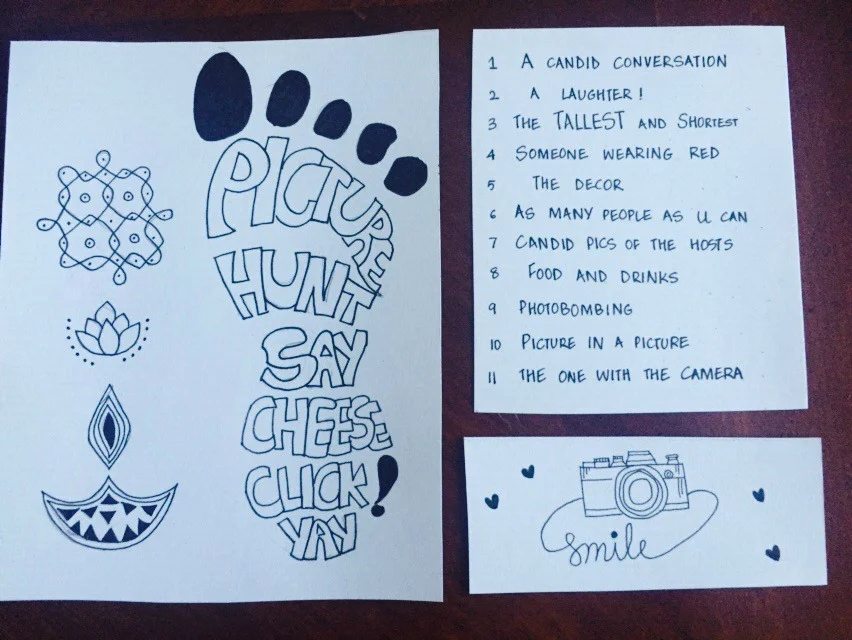 PICTURE
HUNT
SAY
CHEESE
CLICK!
YAY
1 A CANDID CONVERSATION
2 A LAUGHTER!
3 THE TALLEST AND SHORTEST
4 SOMEONE WEARING RED
5 THE DECOR
6 AS MANY PEOPLE AS U CAN
7 CANDID PICS OF THE HOSTS
8 FOOD AND DRINKS
9 PHOTOBOMBING
10 PICTURE IN A PICTURE
11 THE ONE WITH THE CAMERA
smile